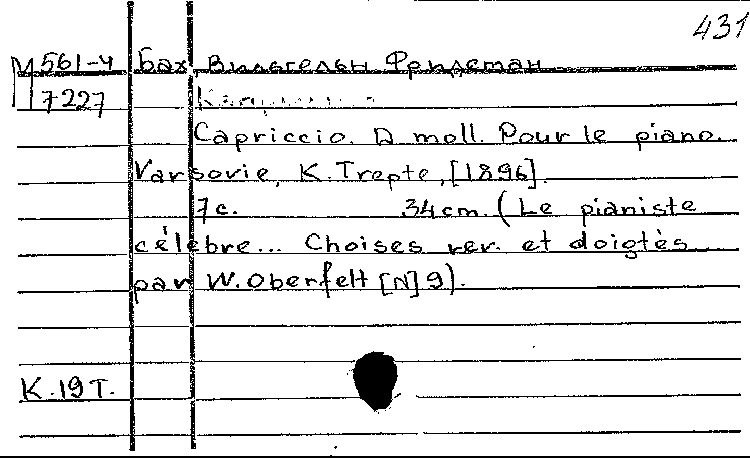 431
М 561-4 Бах, Вильгельм Фридеман
7227
Capriccio. D moll. Pour le piano.
Varsovie, K. Trepte, [1896].
7 с. 34 cm. (Le pianiste
célèbre... Choises rev. et doigtès
par W. Oberfelt [N] 9).
К.19 Т.